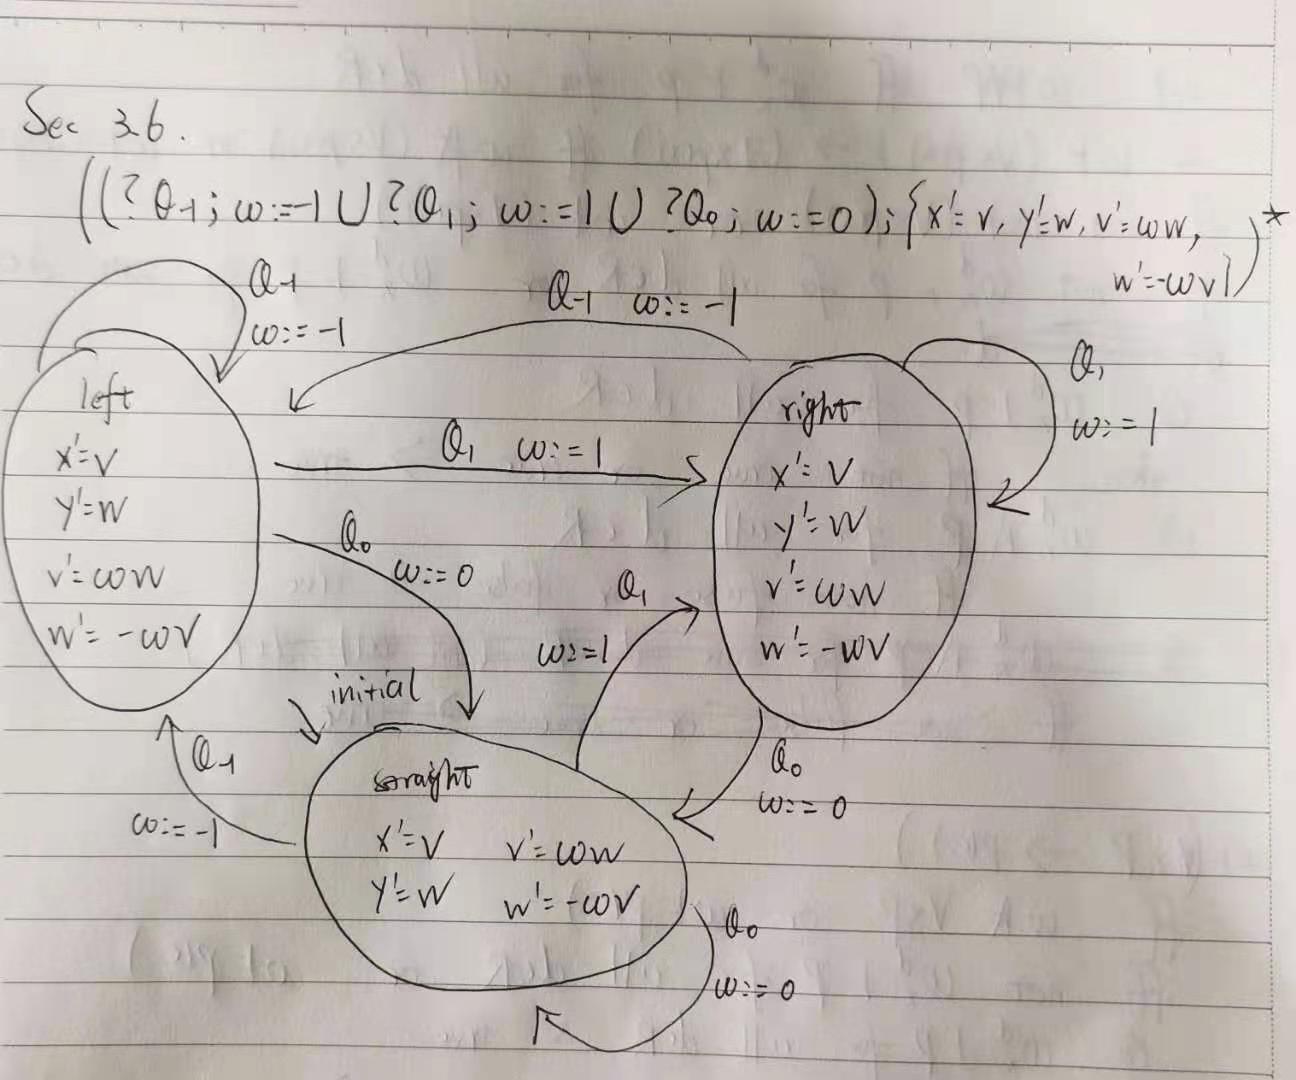 Sec 3.6.
((?Q₋₁; ω:=-1 ∪ ?Q₁; ω:=1 ∪ ?Q₀; ω:=0); {x'=v, y'=w, v'=ωw,
w'=-ωv})*
Q₋₁
ω:=-1
Q₋₁ ω:=-1
left
x'=v
y'=w
v'=ωw
w'=-ωv
Q₁ ω:=1
right
x'=v
y'=w
v'=ωw
w'=-ωv
Q₁
ω:=1
Q₀
ω:=0
Q₁
ω:=1
initial
Q₋₁
ω:=-1
Q₀
ω:=0
straight
x'=v v'=ωw
y'=w w'=-ωv
Q₀
ω:=0